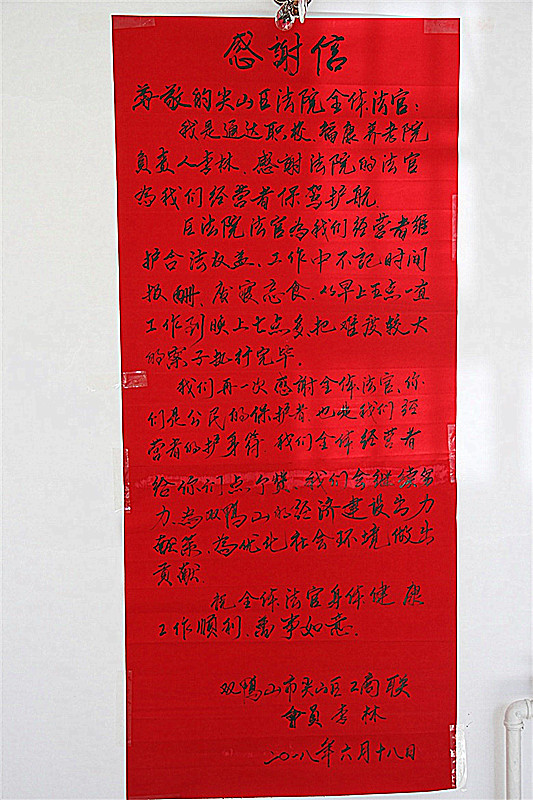 感謝信
尊敬的尖山区法院全体法官：
我是通达职校、福康养老院
负责人李林、感谢法院的法官
为我们经营者保驾护航.
区法院法官为我们经营者维
护合法权益、工作中不記时间
报酬、废寝忘食.从早上五点一直
工作到晚上七点多把难度较大
的案子执行完毕.
我们再一次感谢全体法官、你
们是公民的保护者也是我们经
营者的护身符.我们全体经营者
给你们点个赞、我们会继续努
力、为双鸭山的经济建设出力
献策、为优化社会环境做出
贡献.
祝全体法官身体健康
工作順利、萬事如意.
双鸭山市尖山区工商联
会员李林
二〇一八年六月十八日